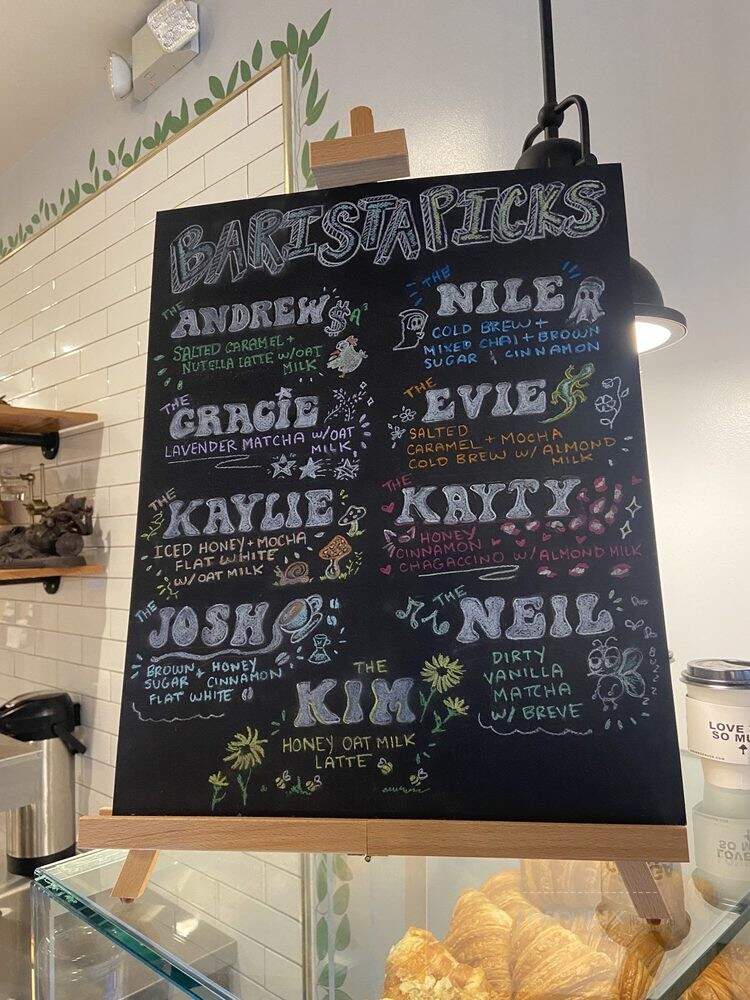 BARISTA PICKS
THE
ANDREW
$A³
SALTED CARAMEL +
NUTELLA LATTE W/OAT
MILK
THE
NILE
COLD BREW +
MIXED CHAI + BROWN
SUGAR & CINNAMON
THE
GRACIE
LAVENDER MATCHA W/OAT
MILK
THE
EVIE
SALTED
CARAMEL + MOCHA
COLD BREW W/ ALMOND
MILK
THE
KAYLIE
ICED HONEY + MOCHA
FLAT WHITE
W/OAT MILK
THE
KAYTY
HONEY
CINNAMON
CHAGACCINO W/ALMOND MILK
THE
JOSH
BROWN + HONEY
SUGAR CINNAMON
FLAT WHITE
THE
NEIL
DIRTY
VANILLA
MATCHA
W/ BREVE
THE
KIM
HONEY OAT MILK
LATTE
LOVE
SO MU